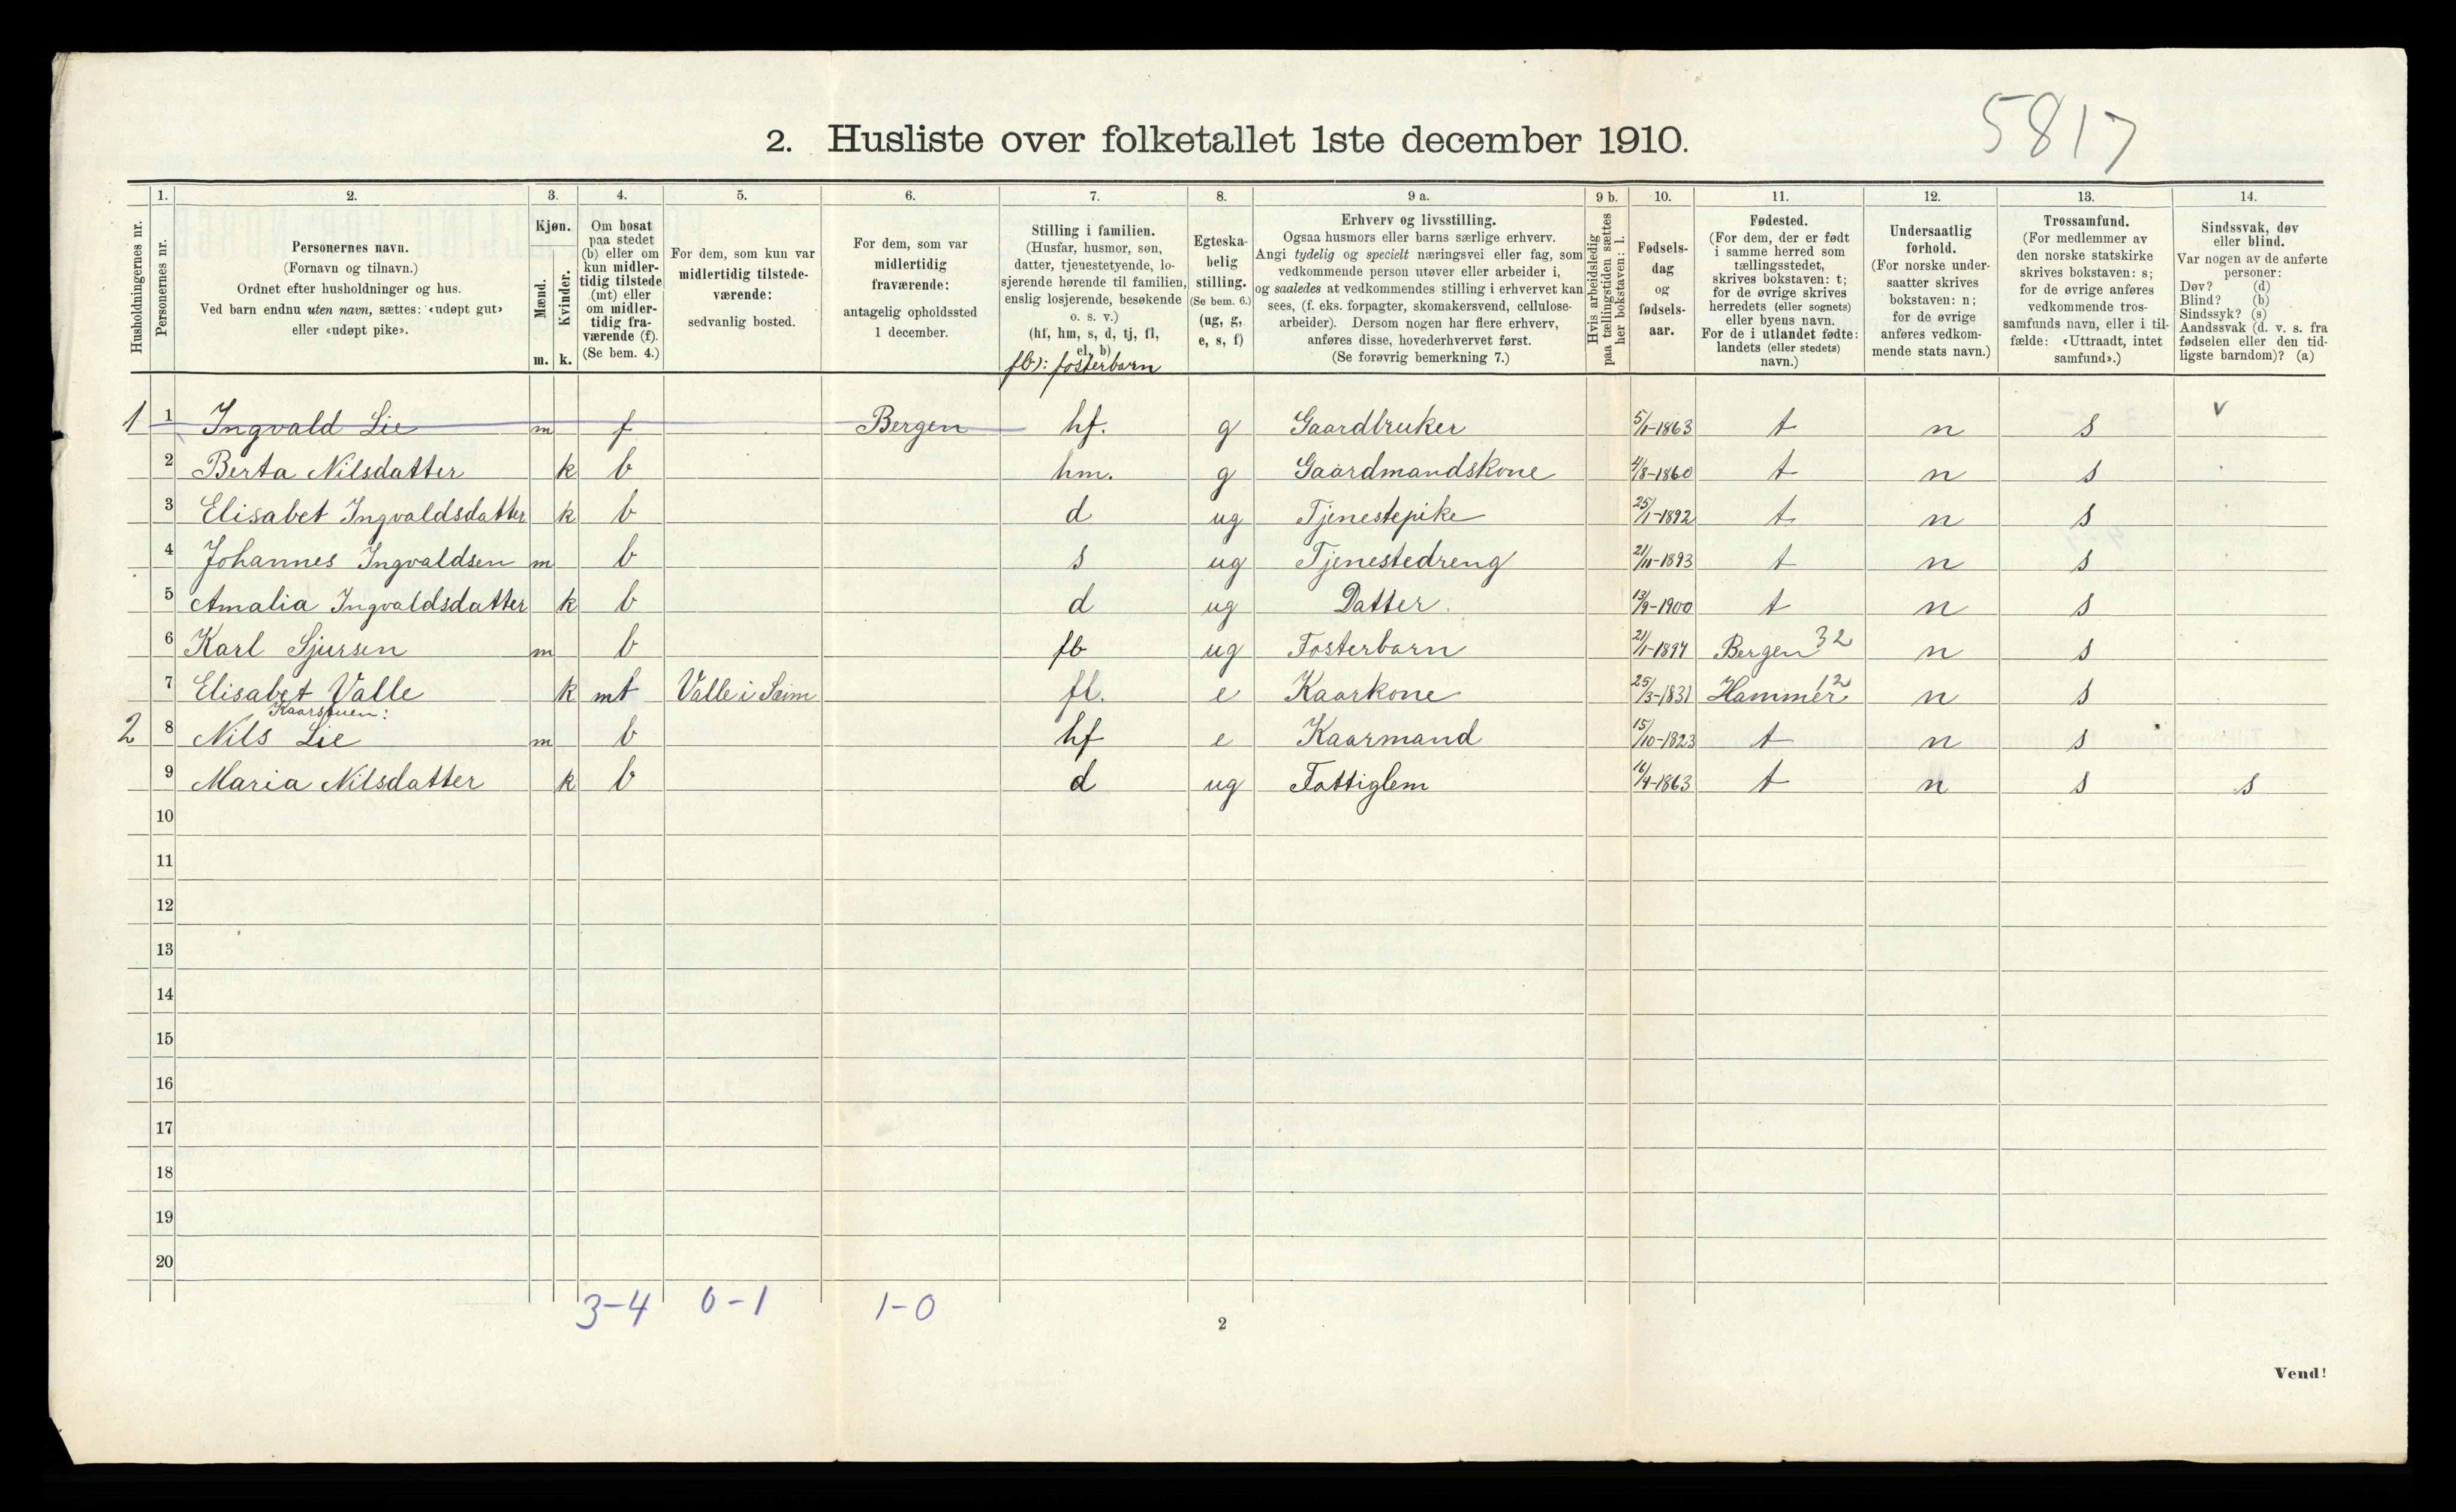 5817
2. Husliste over folketallet 1ste december 1910.
Husholdningernes nr.
1.
Personernes nr.
2.
Personernes navn.
(Fornavn og tilnavn.)
Ordnet efter husholdninger og hus.
Ved barn endnu uten navn, sættes: «udøpt gut»
eller «udøpt pike».
3.
Kjøn.
Mænd.
m.
Kvinder.
k.
4.
Om bosat
paa stedet
(b) eller om
kun midler-
tidig tilstede
(mt) eller
om midler-
tidig fra-
værende (f).
(Se bem. 4.)
5.
For dem, som kun var
midlertidig tilstede-
værende:
sedvanlig bosted.
6.
For dem, som var
midlertidig
fraværende:
antagelig opholdssted
1 december.
7.
Stilling i familien.
(Husfar, husmor, søn,
datter, tjenestetyende, lo-
sjerende hørende til familien,
enslig losjerende, besøkende
o. s. v.)
(hf, hm, s, d, tj, fl,
el, b)
fb): fosterbarn
8.
Egteska-
belig
stilling.
(Se bem. 6.)
(ug, g,
e, s, f)
9 a.
Erhverv og livsstilling.
Ogsaa husmors eller barns særlige erhverv.
Angi tydelig og specielt næringsvei eller fag, som
vedkommende person utøver eller arbeider i,
og saaledes at vedkommendes stilling i erhvervet kan
sees, (f. eks. forpagter, skomakersvend, cellulose-
arbeider). Dersom nogen har flere erhverv,
anføres disse, hovederhvervet først.
(Se forøvrig bemerkning 7.)
9 b.
Hvis arbeidsledig
paa tællingstiden sættes
her bokstaven: l.
10.
Fødsels-
dag
og
fødsels-
aar.
11.
Fødested.
(For dem, der er født
i samme herred som
tællingsstedet,
skrives bokstaven: t;
for de øvrige skrives
herredets (eller sognets)
eller byens navn.
For de i utlandet fødte:
landets (eller stedets)
navn.)
12.
Undersaatlig
forhold.
(For norske under-
saatter skrives
bokstaven: n;
for de øvrige
anføres vedkom-
mende stats navn.)
13.
Trossamfund.
(For medlemmer av
den norske statskirke
skrives bokstaven: s;
for de øvrige anføres
vedkommende tros-
samfunds navn, eller i til-
fælde: «Uttraadt, intet
samfund».)
14.
Sindssvak, døv
eller blind.
Var nogen av de anførte
personer:
Døv? (d)
Blind? (b)
Sindssyk? (s)
Aandssvak (d. v. s. fra
fødselen eller den tid-
ligste barndom)? (a)
1 1 Ingvald Lie m f Bergen hf. g Gaardbruker 5/1-1863 t n s v
2 Berta Nilsdatter k b hm. g Gaardmandskone 4/8-1860 t n s
3 Elisabet Ingvaldsdatter k b d ug Tjenestepike 25/1-1892 t n s
4 Johannes Ingvaldsen m b s ug Tjenestedreng 21/11-1893 t n s
5 Amalia Ingvaldsdatter k b d ug Datter. 13/9-1900 t n s
6 Karl Sjursen m b fb ug Fosterbarn 21/1-1897 Bergen 32 n s
7 Elisabet Valle k mt Valle i Seim fl. e Kaarkone 25/3-1831 Hammer 12 n s
Kaarstuen:
2 8 Nils Lie m b hf e Kaarmand 15/10-1823 t n s
9 Maria Nilsdatter k b d ug Fattiglem 16/4-1863 t n s s
10
11
12
13
14
15
16
17
18
19
20
3-4 0-1 1-0
2
Vend!